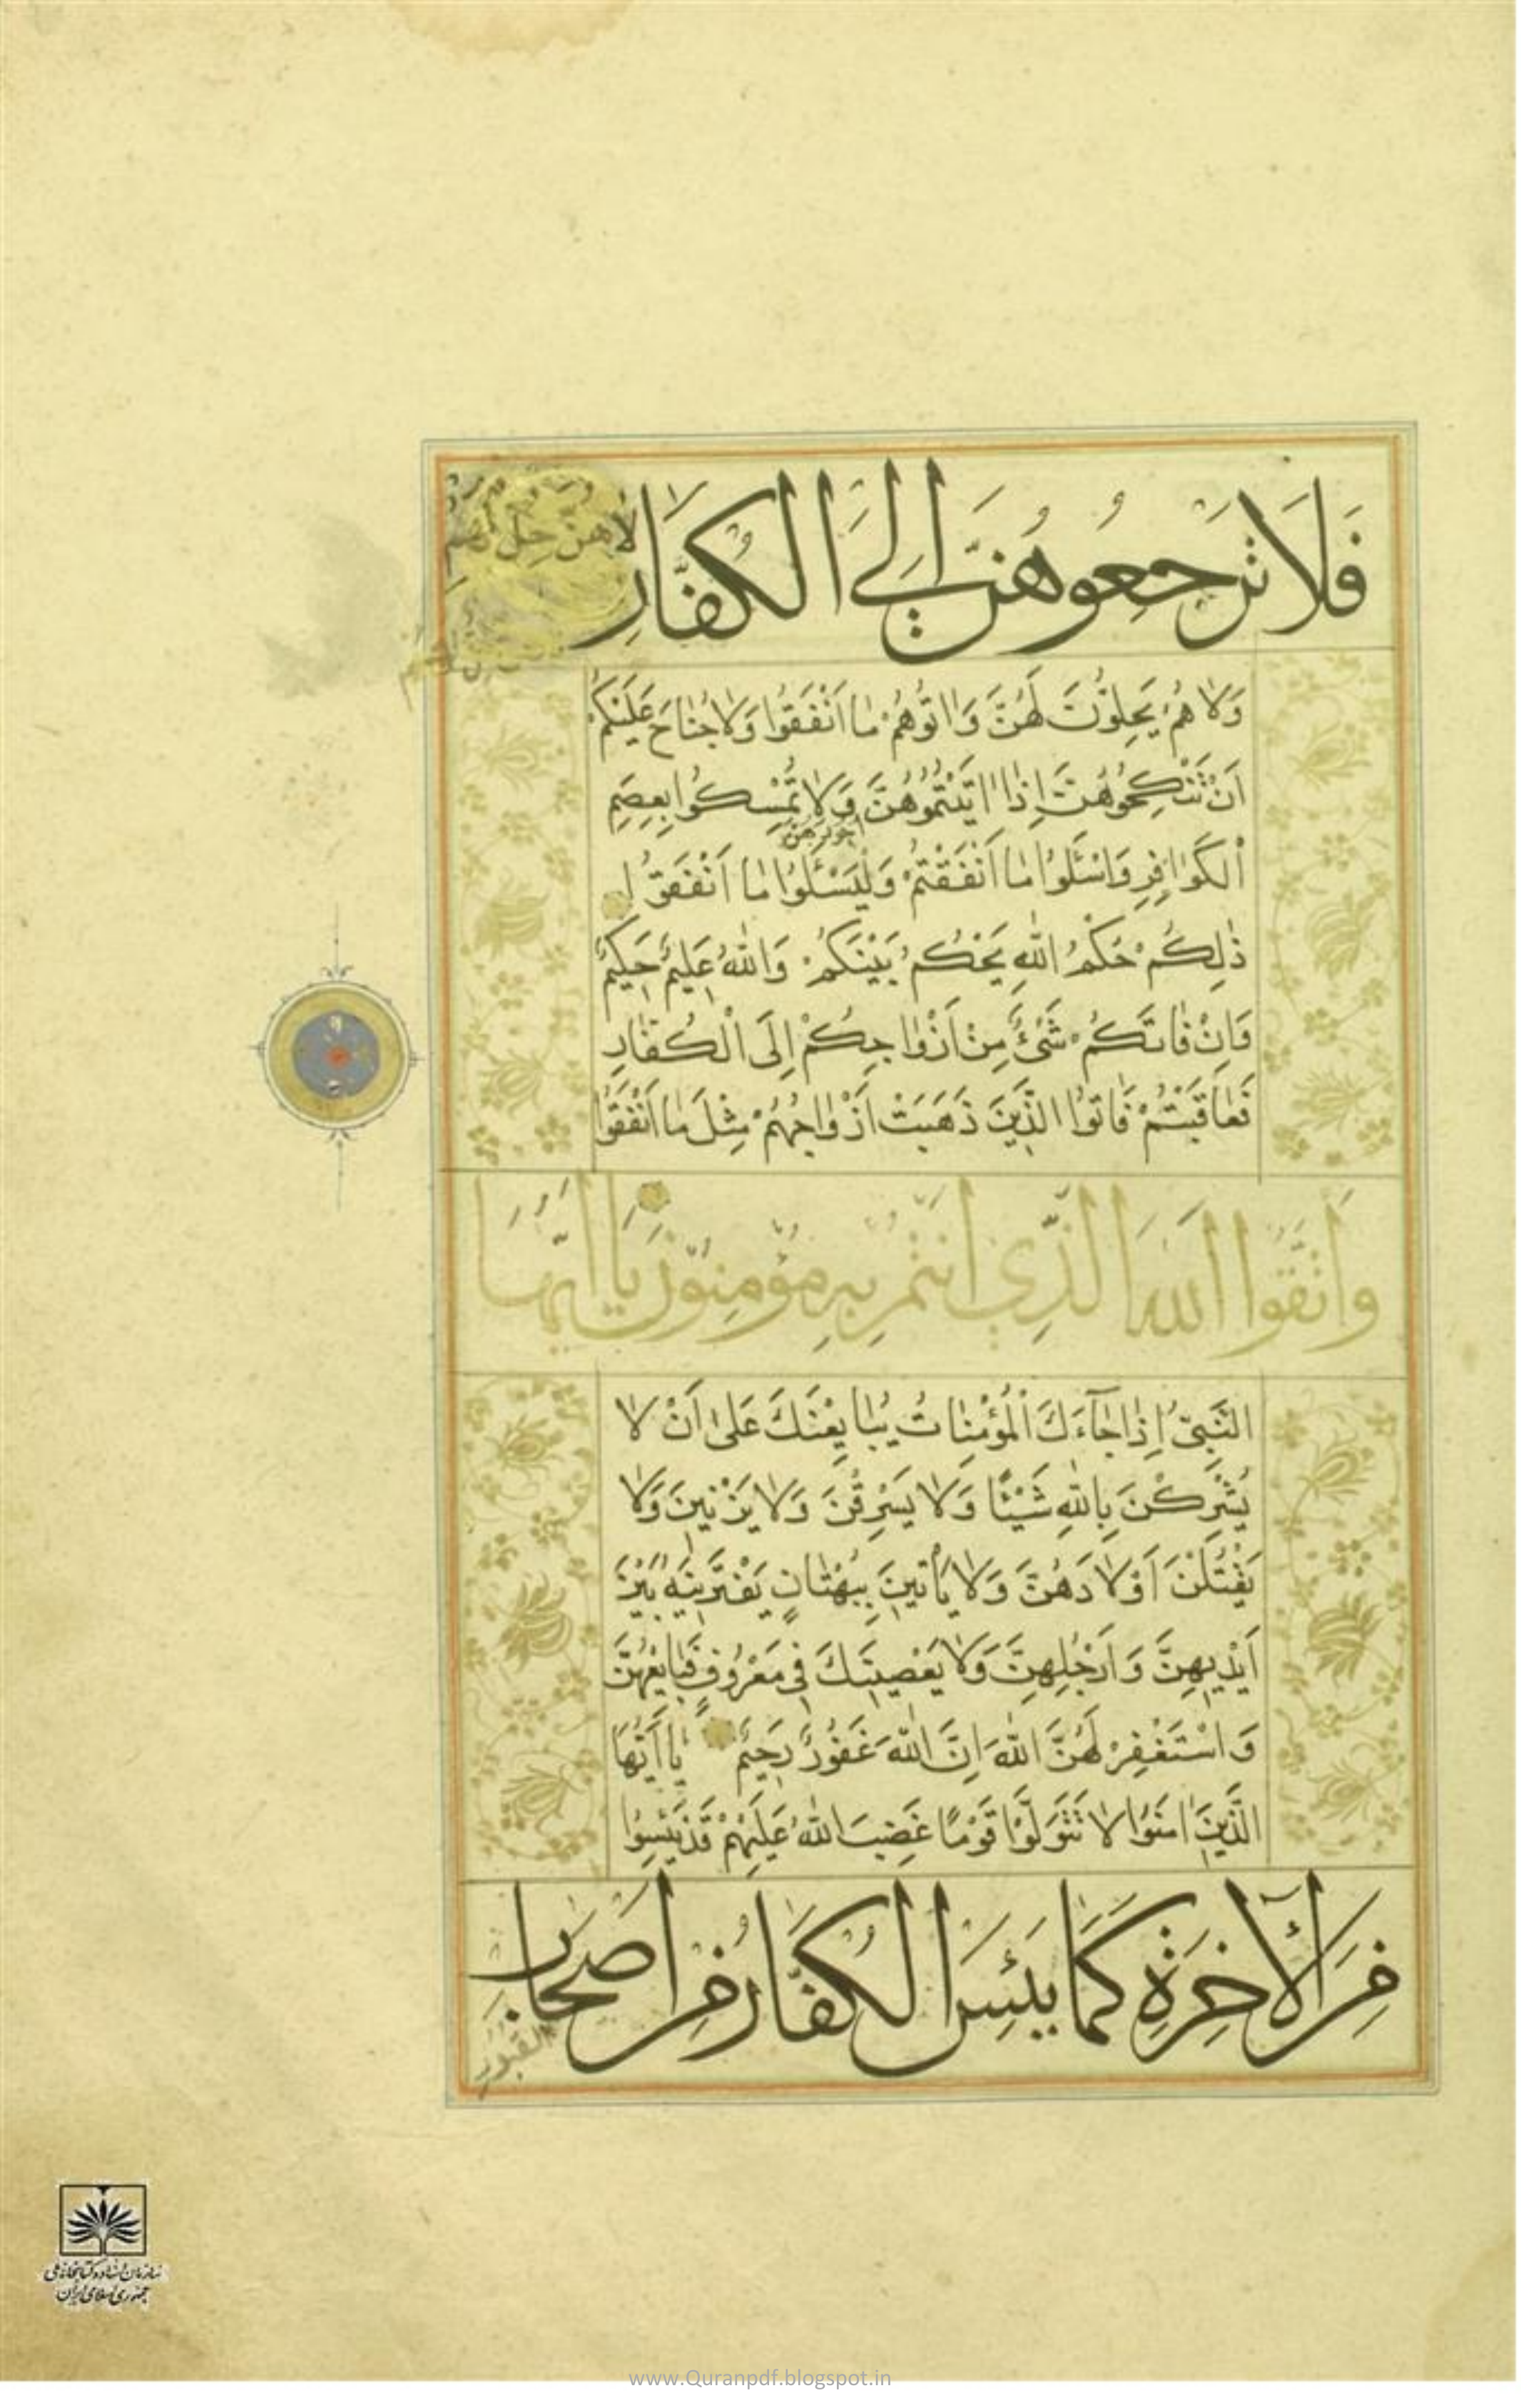 فَلَا تَرْجِعُوهُنَّ إِلَى الْكُفَّارِ
لَاهُنَّ حِلٌّ لَهُمْ
وَلَا هُمْ يَحِلُّونَ لَهُنَّ وَاتُوهُمْ مَا اَنْفَقُوا وَلَا جُنَاحَ عَلَيْكُمْ
اَنْ تَنْكِحُوهُنَّ اِذَا اتَيْتُمُوهُنَّ وَلَا تُمْسِكُوا بِعِصَمِ
اُجُورَهُنَّ
الْكَوَافِرِ وَاسْئَلُوا مَا اَنْفَقْتُمْ وَلْيَسْئَلُوا مَا اَنْفَقُوا
ذٰلِكُمْ حُكْمُ اللهِ يَحْكُمُ بَيْنَكُمْ وَاللهُ عَلِيمٌ حَكِيمٌ
وَاِنْ فَاتَكُمْ شَيْئٌ مِنْ اَزْوَاجِكُمْ اِلَى الْكُفَّارِ
فَعَاقَبْتُمْ فَاتُوا الَّذِينَ ذَهَبَتْ اَزْوَاجُهُمْ مِثْلَ مَا اَنْفَقُوا
وَاتَّقُوا اللهَ الَّذِي اَنْتُمْ بِهِ مُؤْمِنُونَ يَا اَيُّهَا
النَّبِيُّ اِذَا جَآءَكَ الْمُؤْمِنَاتُ يُبَايِعْنَكَ عَلىٰ اَنْ لَا
يُشْرِكْنَ بِاللهِ شَيْئًا وَلَا يَسْرِقْنَ وَلَا يَزْنِينَ وَلَا
يَقْتُلْنَ اَوْلَادَهُنَّ وَلَا يَأْتِينَ بِبُهْتَانٍ يَفْتَرِينَهُ بَيْنَ
اَيْدِيهِنَّ وَاَرْجُلِهِنَّ وَلَا يَعْصِينَكَ فِي مَعْرُوفٍ فَبَايِعْهُنَّ
وَاسْتَغْفِرْ لَهُنَّ اللهَ اِنَّ اللهَ غَفُورٌ رَحِيمٌ يَا اَيُّهَا
الَّذِينَ امَنُوا لَا تَتَوَلَّوْا قَوْمًا غَضِبَ اللهُ عَلَيْهِمْ قَدْ يَئِسُوا
مِنَ الْآخِرَةِ كَمَا يَئِسَ الْكُفَّارُ مِنْ اَصْحَابِ
الْقُبُورِ
سازمان اسناد و کتابخانه ملی
جمهوری اسلامی ایران
www.Quranpdf.blogspot.in